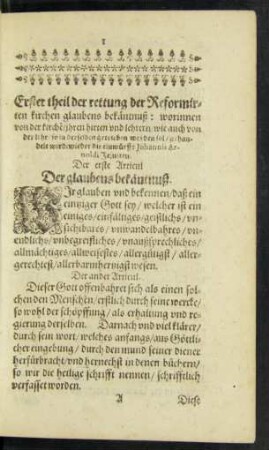 1
Erster theil der rettung der Reformir-
ten kirchen glaubens bekäntnuß: worinnen
von der kirche/ihren hirten und lehrern, wie auch von
der lehr so in derselben getrieben werden sol/ gehan-
delt wird wieder die einwürffe Johannis Ar-
noldi Jesuiten.
Der erste Articul
Der glaubens bekäntnuß.
WIr glauben vnd bekennen/ daß ein
einziger Gott sey/ welcher ist ein
einiges/einfältiges/geistliches/ vn-
sichtbares/ vnwandelbahres/ vn-
endlichs/vnbegreiffliches/vnaußsprechliches/
allmächtiges/allweisestes/allergütigst/ aller-
gerechtest/allerbarmhertzigst wesen.
Der ander Articul.
Dieser Gott offenbahret sich als einen sol-
chen den Menschen/ erstlich durch seine wercke/
so wohl der schöpffung/ als erhaltung vnd re-
gierung derselben. Darnach vnd viel klärer/
durch sein wort/ welches anfangs/aus Göttli-
cher eingebung/ durch den mund seiner diener
herfürbracht/ vnd hernechst in denen büchern/
so wir die heilige schrifft nennen/ schrifftlich
verfasset worden.
A Diese